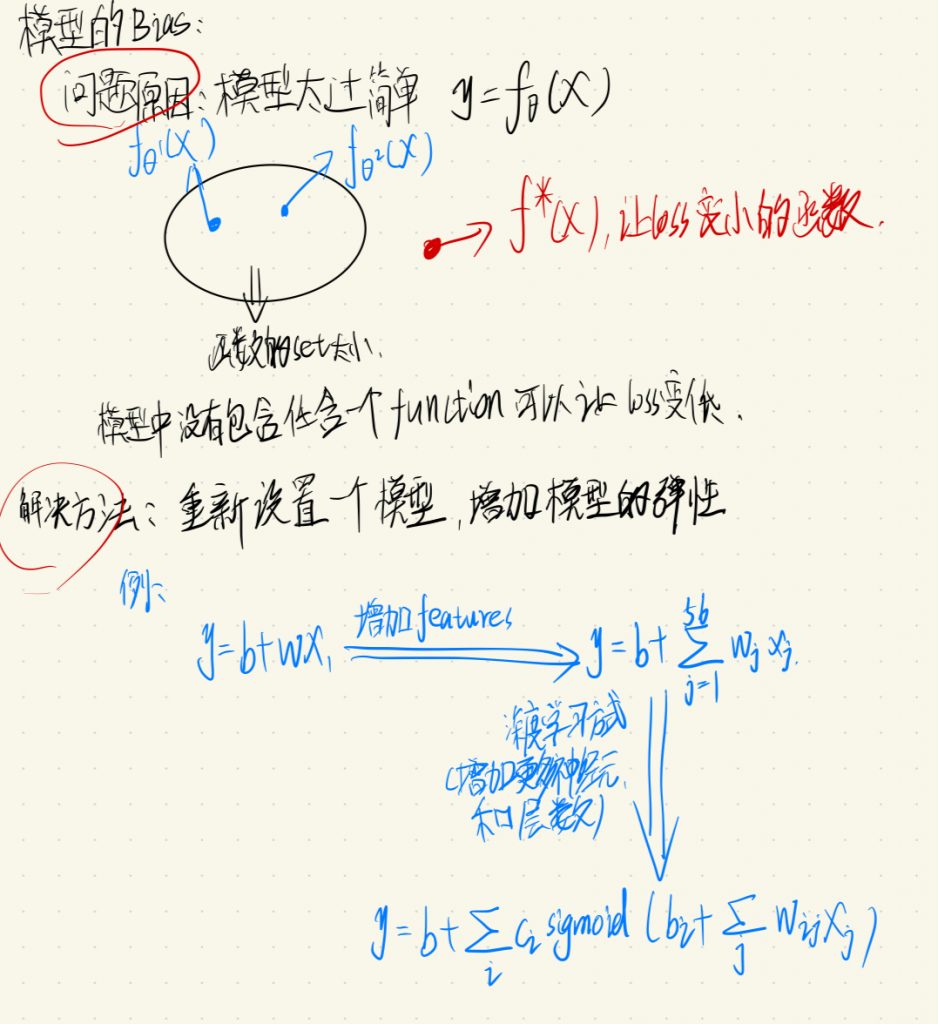 模型的Bias:
问题原因: 模型太过简单 y=fθ(X)
fθ¹(X) fθ²(X)
f*(X), 让loss变小的函数.
函数的set太小.
模型中没有包含任含一个function可以让loss变低.
解决方法: 重新设置一个模型, 增加模型的弹性
例:
y=b+wx₁ 增加features y=b+∑_{j=1}^{56} w_j x_j.
深度学习方式
(增加更多神经元,
和层数)
y=b+∑_i c_i sigmoid (b_i+∑_j w_ij x_j)